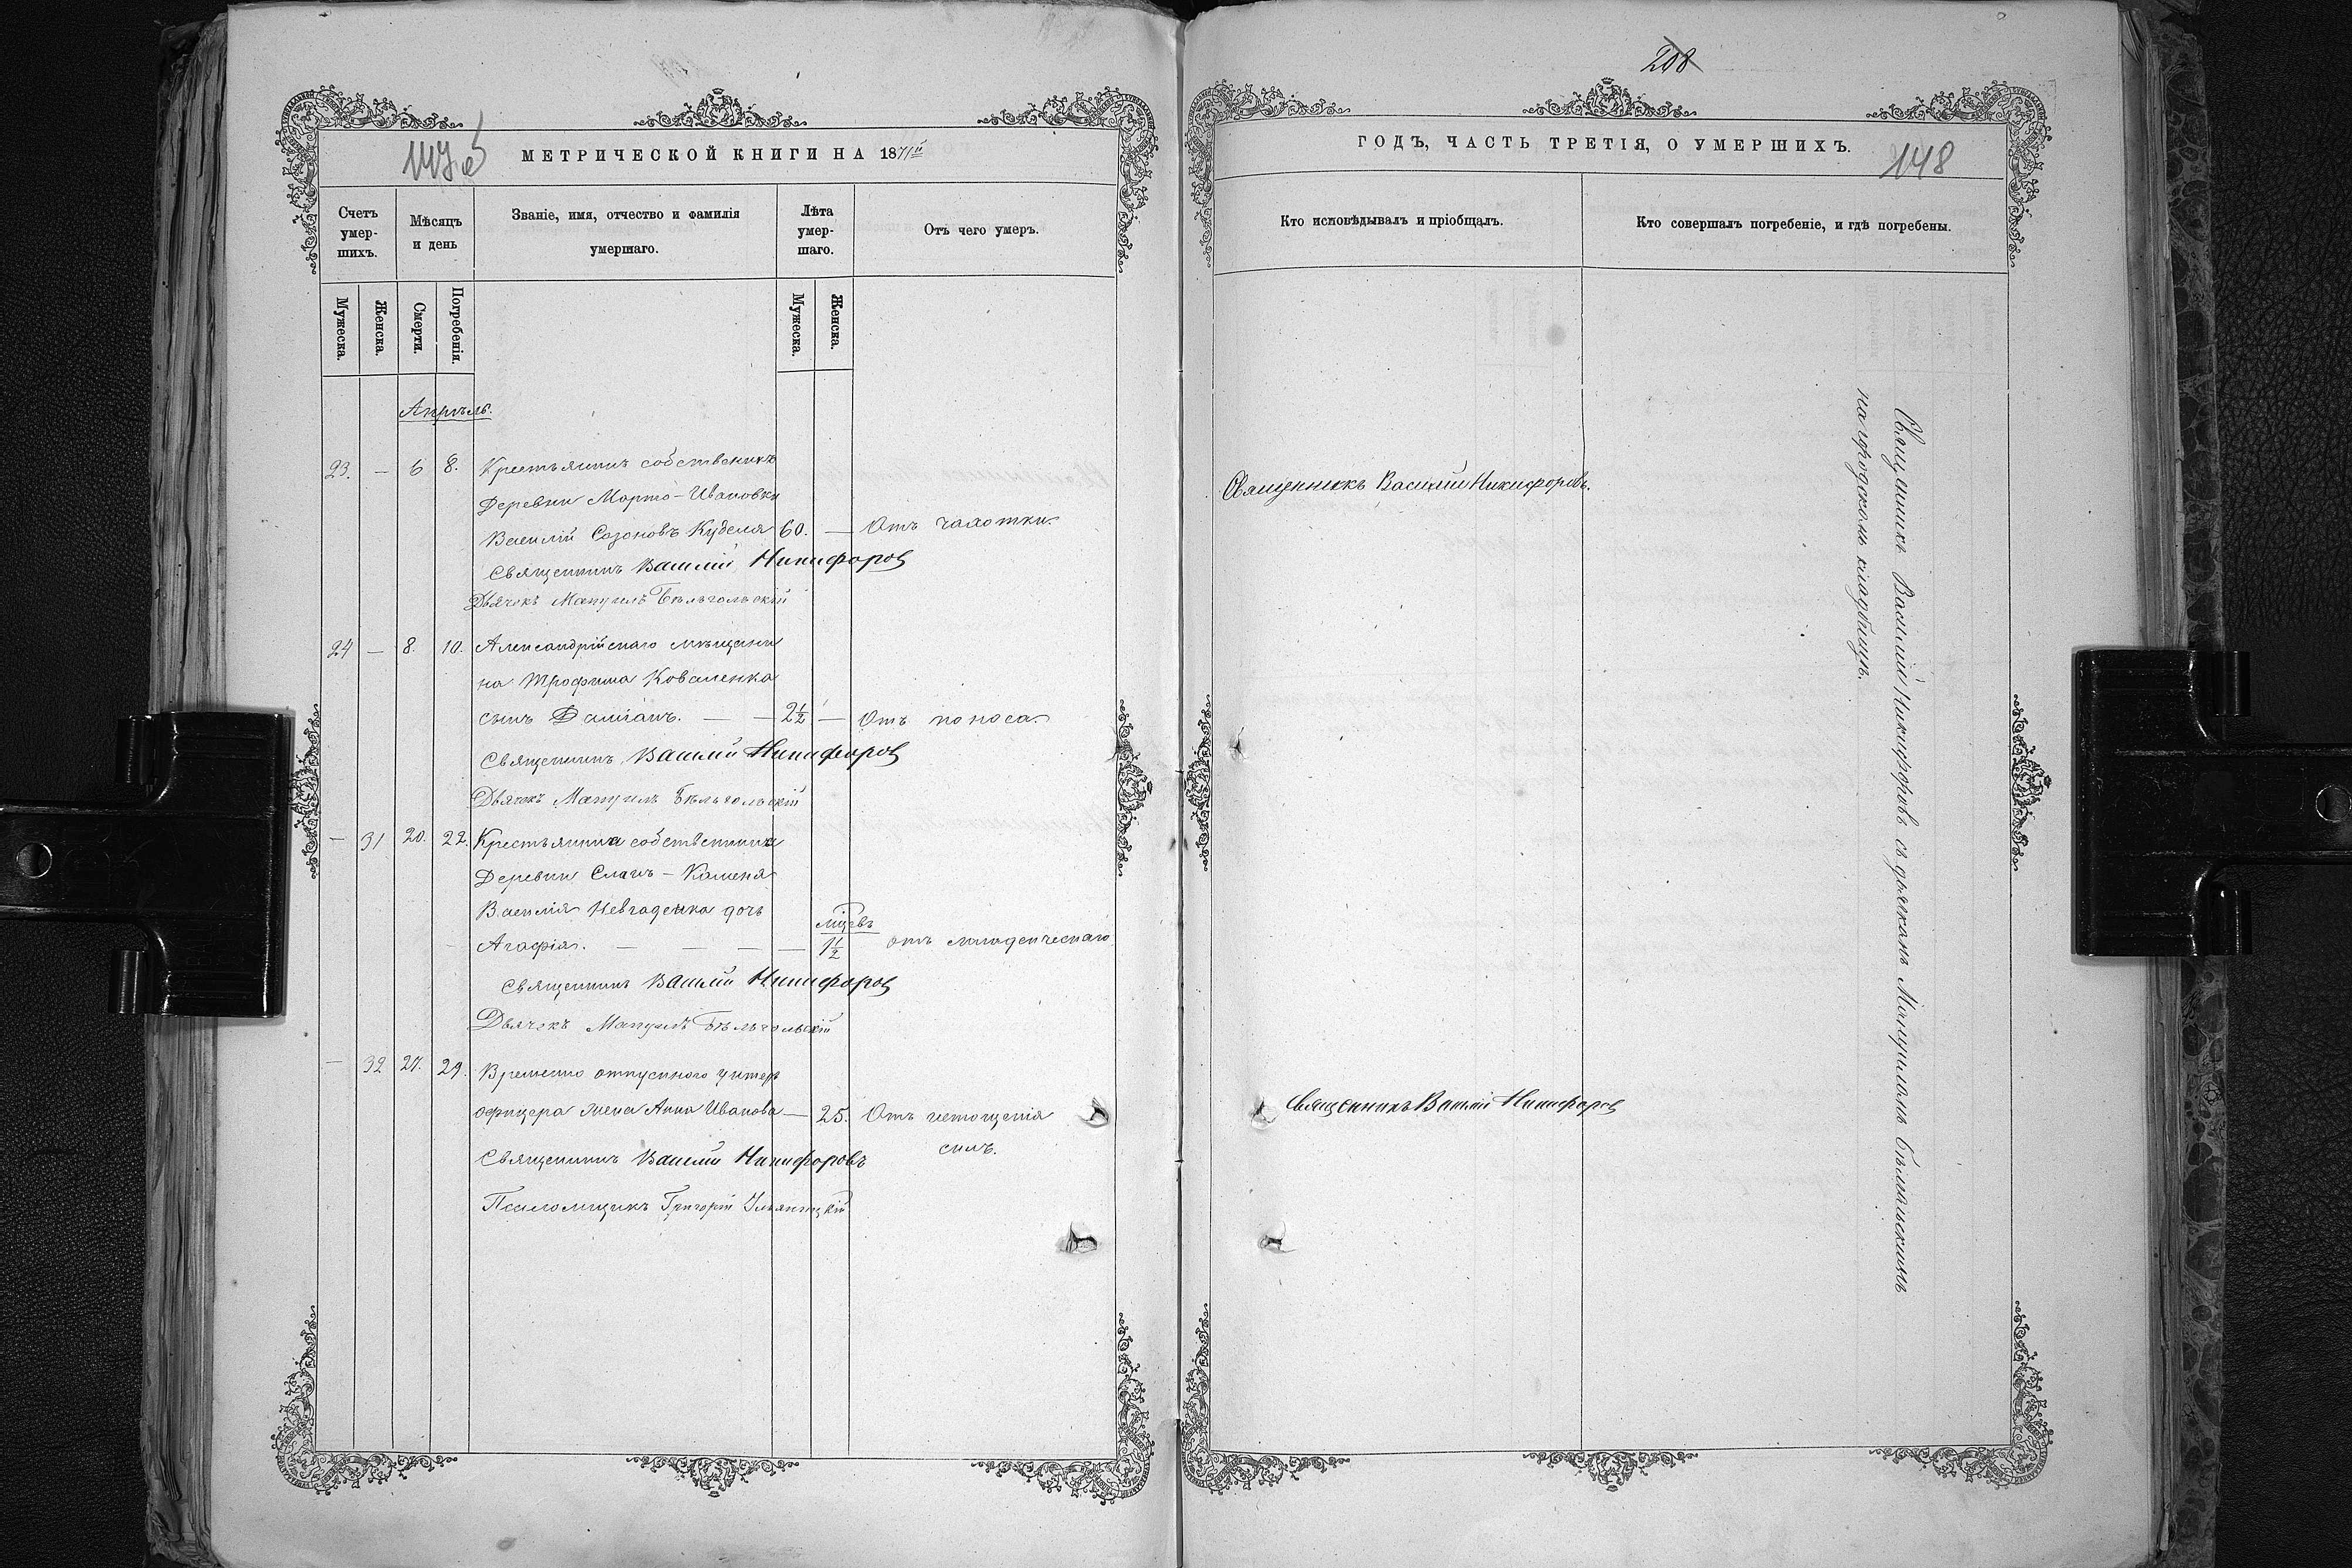 МЕТРИЧЕСКОЙ КНИГИ НА 1871й
Счетъ умер-шихъ.
Мѣсяцъ и день
Званіе, имя, отчество и фамилія умершаго.
Лѣта умер-шаго.
Отъ чего умеръ.
Мужеска.
Женска.
Смерти.
Погребенія.
Мужеска.
Женска.
Апрѣль.
23. — 6 8. Крестьянинъ собственникъ
Деревни Марто-Ивановки
Василій Созоновъ Кубеля 60. — Отъ чахотки.
Священникъ Василій Никифоров
Дьячекъ Мануилъ Бѣльгольскій
24 — 8. 10. Александрійскаго мѣщани
на Трофима Коваленка
сынъ Даміанъ. — — 2½ — Отъ поноса.
Священникъ Василій Никифоров
Дьячекъ Мануилъ Бѣльгольскій
— 31 20. 22. Крестьянина собственника
Деревни
Василія Невгаденка дочь
мцевъ
Агафія. — — — — 1½ отъ младенческаго
Священникъ Василій Никифоров
Дьячекъ Мануилъ Бѣльгольскій
— 32 27. 29. Временно отпускного унтеръ
офицера жена Анна Иванова — 25. Отъ истощенія
силъ.
Священникъ Василій Никифоровъ
Псаломщикъ Григорій Ульяницкій
208
ГОДЪ, ЧАСТЬ ТРЕТІЯ, О УМЕРШИХЪ.
148
Кто исповѣдывалъ и пріобщалъ.
Кто совершалъ погребеніе, и гдѣ погребены.
Священникъ Василій Никифоровъ.
Священникъ Василій Никифоров
Священникъ Василій Никифоровъ съ дьячкомъ Мануиломъ Бѣльгольскимъ
на городскомъ кладбищѣ.